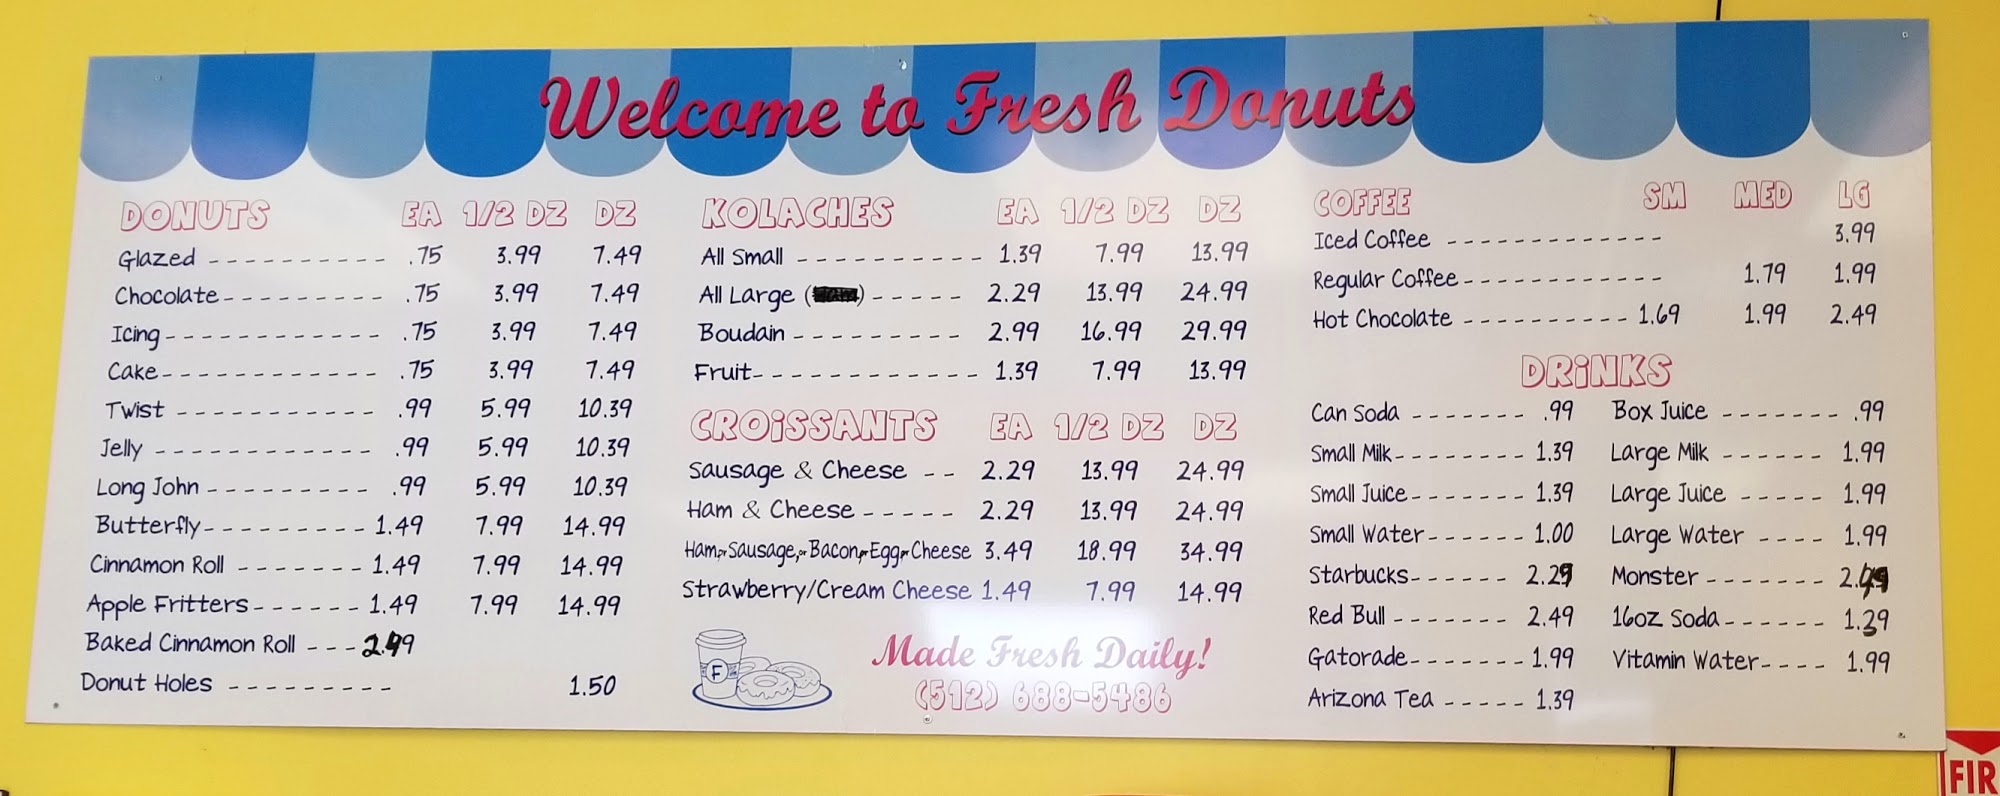 Welcome to Fresh Donuts
DONUTS EA 1/2 DZ DZ
Glazed .75 3.99 7.49
Chocolate .75 3.99 7.49
Icing .75 3.99 7.49
Cake .75 3.99 7.49
Twist .99 5.99 10.39
Jelly .99 5.99 10.39
Long John .99 5.99 10.39
Butterfly 1.49 7.99 14.99
Cinnamon Roll 1.49 7.99 14.99
Apple Fritters 1.49 7.99 14.99
Baked Cinnamon Roll 2.49
Donut Holes 1.50
KOLACHES EA 1/2 DZ DZ
All Small 1.39 7.99 13.99
All Large 2.29 13.99 24.99
Boudain 2.99 16.99 29.99
Fruit 1.39 7.99 13.99
CROiSSANTS EA 1/2 DZ DZ
Sausage & Cheese 2.29 13.99 24.99
Ham & Cheese 2.29 13.99 24.99
Ham, or Sausage, or Bacon, or Egg, or Cheese 3.49 18.99 34.99
Strawberry/Cream Cheese 1.49 7.99 14.99
F
Made Fresh Daily!
(512) 688-5486
COFFEE SM MED LG
Iced Coffee 3.99
Regular Coffee 1.79 1.99
Hot Chocolate 1.69 1.99 2.49
DRiNKS
Can Soda .99
Small Milk 1.39
Small Juice 1.39
Small Water 1.00
Starbucks 2.29
Red Bull 2.49
Gatorade 1.99
Arizona Tea 1.39
Box Juice .99
Large Milk 1.99
Large Juice 1.99
Large Water 1.99
Monster
16oz Soda 1.39
Vitamin Water 1.99
FIR